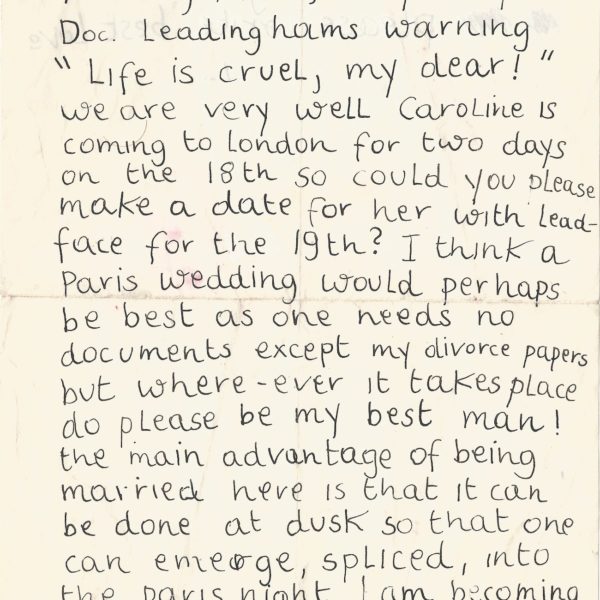 Doc. Leadinghams warning
" Life is cruel, my dear! "
we are very well Caroline is
coming to London for two days
on the 18th so could you please
make a date for her with Lead-
face for the 19th? I think a
Paris wedding would perhaps
be best as one needs no
documents except my divorce papers
but where-ever it takes place
do please be my best man!
the main advantage of being
married here is that it can
be done at dusk so that one
can emerge, spliced, into
the Paris night. I am becoming